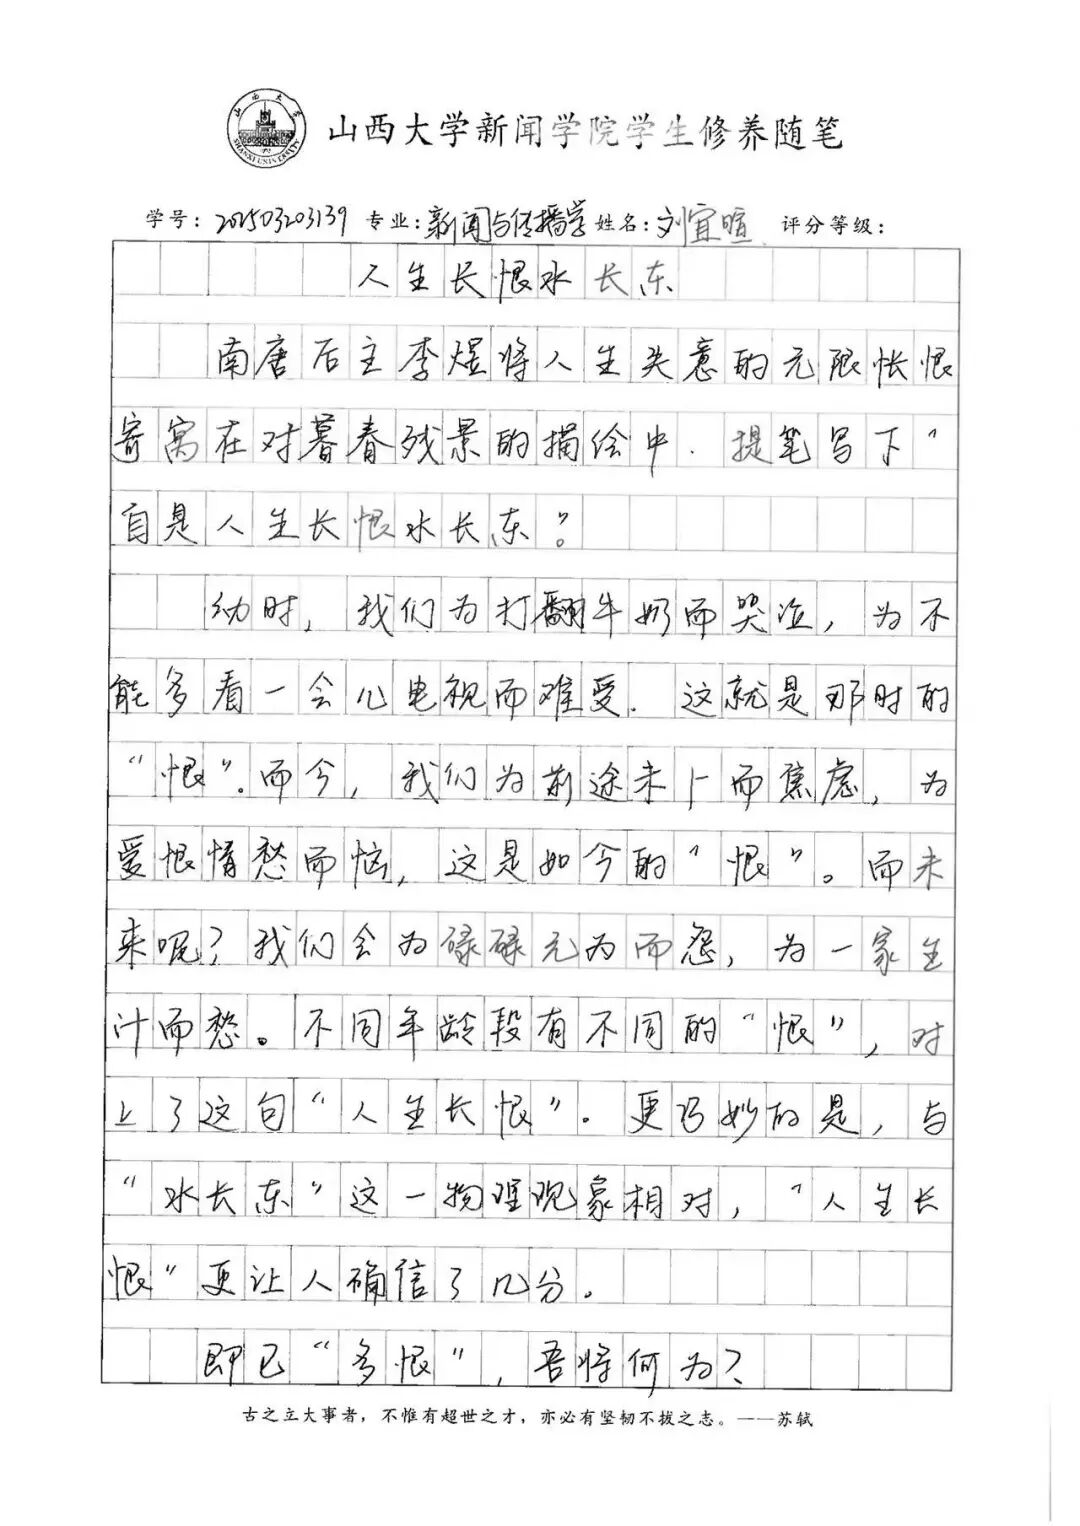 山西大学
SHANXI UNIVERSITY
山西大学新闻学院学生修养随笔
学号：202503203139 专业：新闻与传播学 姓名：刘宜暄 评分等级：
人生长恨水长东
南唐后主李煜将人生失意的无限怅恨
寄寓在对暮春残景的描绘中．提笔写下“
自是人生长恨水长东”。
幼时，我们为打翻牛奶而哭泣，为不
能多看一会儿电视而难受．这就是那时的
“恨”．而今，我们为前途未卜而焦虑，为
爱恨情愁而恼，这是如今的“恨”。而未
来呢？我们会为碌碌无为而怨，为一家生
计而愁。不同年龄段有不同的“恨”，对
上了这句“人生长恨”．更巧妙的是，与
“水长东”这一物理现象相对，“人生长
恨”更让人确信了几分．
即已“多恨”，吾将何为？
古之立大事者，不惟有超世之才，亦必有坚韧不拔之志。——苏轼